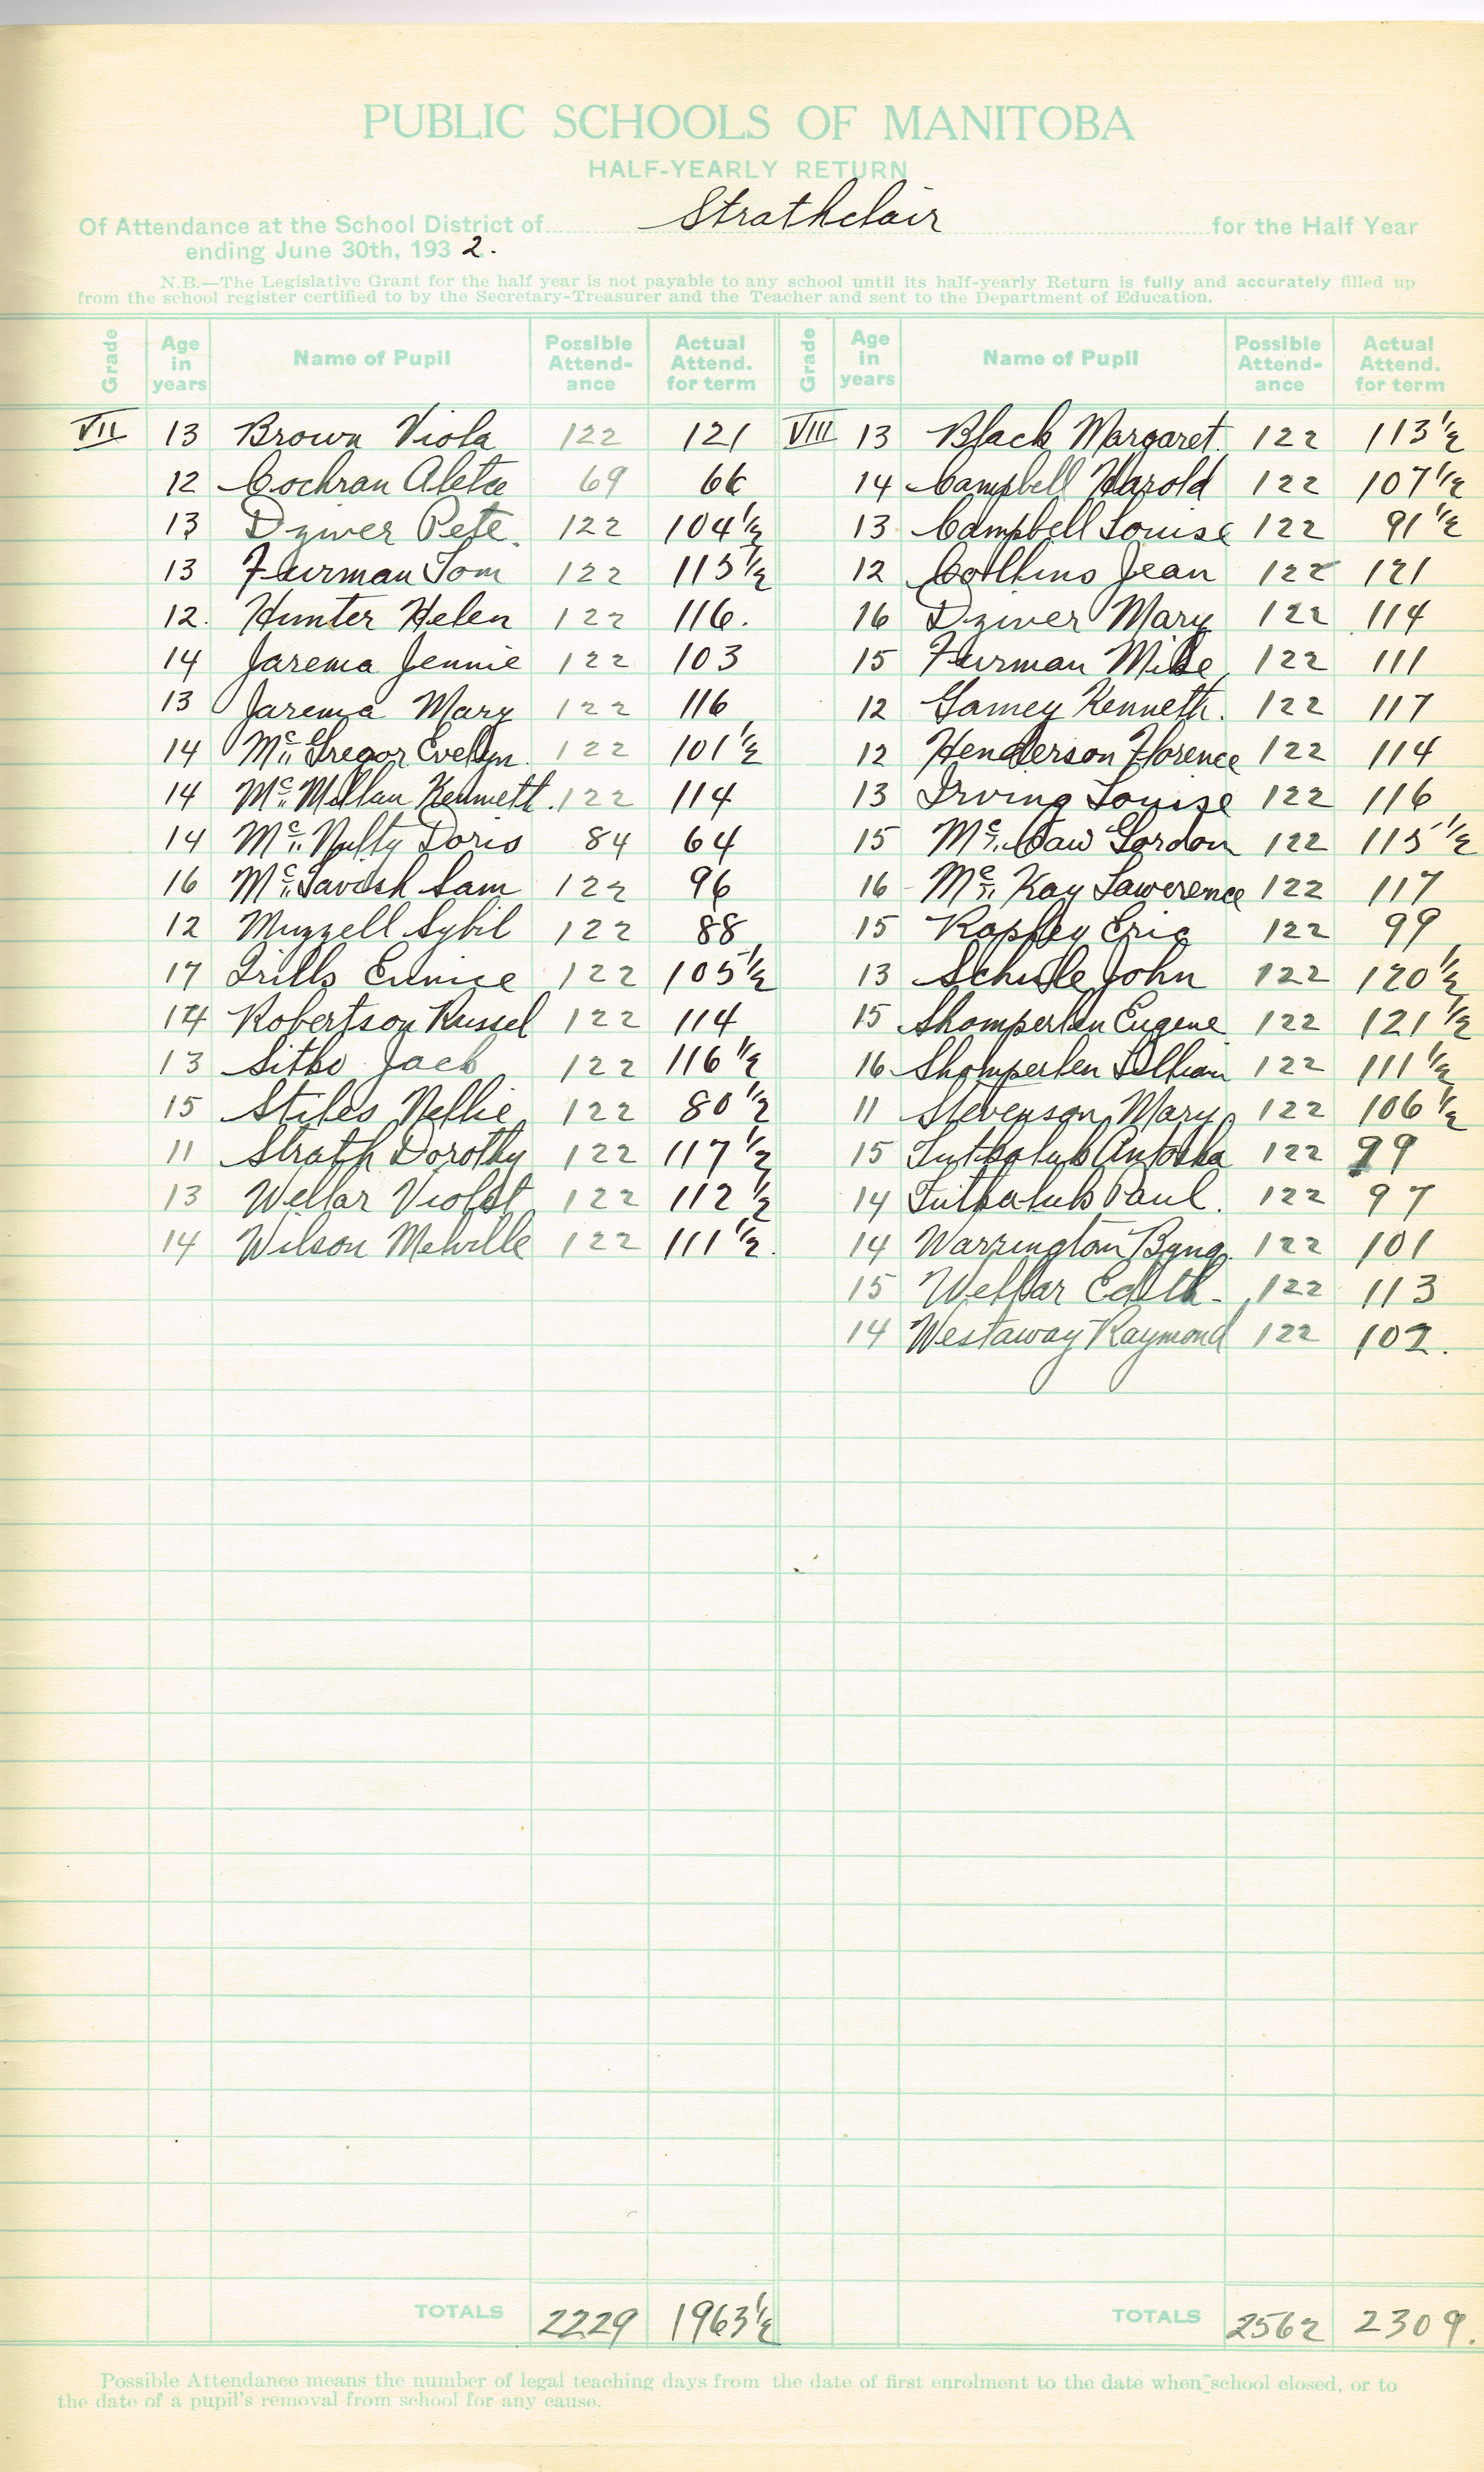 PUBLIC SCHOOLS OF MANITOBA
HALF-YEARLY RETURN
Of Attendance at the School District of Strathclair for the Half Year
ending June 30th, 1932.
N.B.—The Legislative Grant for the half year is not payable to any school until its half-yearly Return is fully and accurately filled up
from the school register certified to by the Secretary-Treasurer and the Teacher and sent to the Department of Education.
Grade Age in years Name of Pupil Possible Attend-ance Actual Attend. for term Grade Age in years Name of Pupil Possible Attend-ance Actual Attend. for term
VII 13 Brown Viola 122 121 VIII 13 Black Margaret. 122 113 1/2
12 Cochran Aleta 69 66 14 Campbell Harold 122 107 1/2
13 Dziver Pete. 122 104 1/2 13 Campbell Louise 122 91 1/2
13 Furman Tom 122 115 1/2 12 Collins Jean 122 121
12. Hunter Helen 122 116. 16 Dziver Mary 122 114
14 Jarema Jennie 122 103 15 Furman Mike 122 111
13 Jarema Mary 122 116 12 Gamey Kenneth. 122 117
14 McGregor Evelyn. 122 101 1/2 12 Henderson Florence 122 114
14 McMillan Kenneth. 122 114 13 Irving Louise 122 116
14 McNulty Doris 84 64 15 McCaw Gordon 122 115 1/2
16 McTavish Sam 122 96 16 McKay Lawerence 122 117
12 Muzzell Sybil 122 88 15 Rapley Eric 122 99
17 Trills Eunice 122 105 1/2 13 Schule John 122 120 1/2
14 Robertson Russel 122 114 15 Shomperlen Eugene 122 121 1/2
13 Sitko Jack 122 116 1/2 16 Shomperlen Lillian 122 111 1/2
15 Stiles Nellie 122 80 1/2 11 Stevenson Mary 122 106 1/2
11 Strath Dorothy 122 117 1/2 15 Tutkaluk Antoska 122 99
13 Wellar Violet 122 112 1/2 14 Tutkaluk Paul. 122 97
14 Wilson Melville 122 111 1/2. 14 Warrington Byng. 122 101
15 Wellar Edith. 122 113
14 Westaway Raymond 122 102.
TOTALS 2229 1963 1/2 TOTALS 2562 2309.
Possible Attendance means the number of legal teaching days from the date of first enrolment to the date when school closed, or to
the date of a pupil's removal from school for any cause.